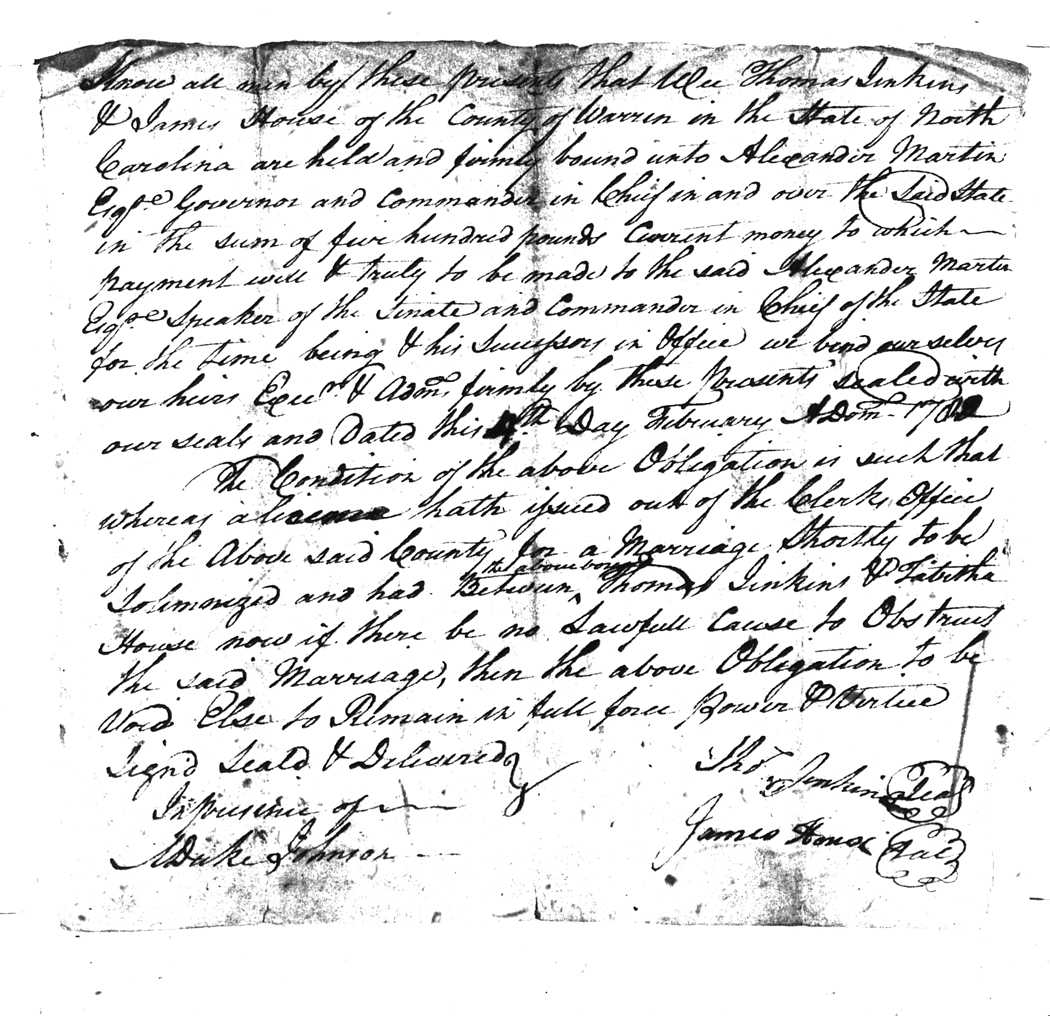 Know all men by these presents that Wee Thomas Jinkins
& James House of the County of Warrin in the State of North
Carolina are held and firmly bound unto Alexander Martin
Esqre Governor and Commander in Chief in and over the Said State
in the sum of five hundred pounds Current money to which
payment will & truly to be made to the said Alexander Martin
Esqre Speaker of the Sinate and Commander in Chief of the State
for the time being & his Successors in Office we bind our selves
our heirs Exec.rs & Adm.s firmly by these presents sealed with
our seals and Dated this th Day February A Dom. 178
The Condition of the above Obligation is such that
whereas a licence hath issued out of the Clerks Office
of the Above said County for a Marriage Shortly to be
the above bound
Solemnized and had Between ^ Thomas Jinkins & Tabitha
House now if there be no Lawfull Cause to Obstruct
the said Marriage, then the above Obligation to be
Void Else to Remain in full force Power & Virtue
Signd Seald & Delivered
In presence of
MDuke Johnson
Tho.s Jenkins Seal
James House Seal